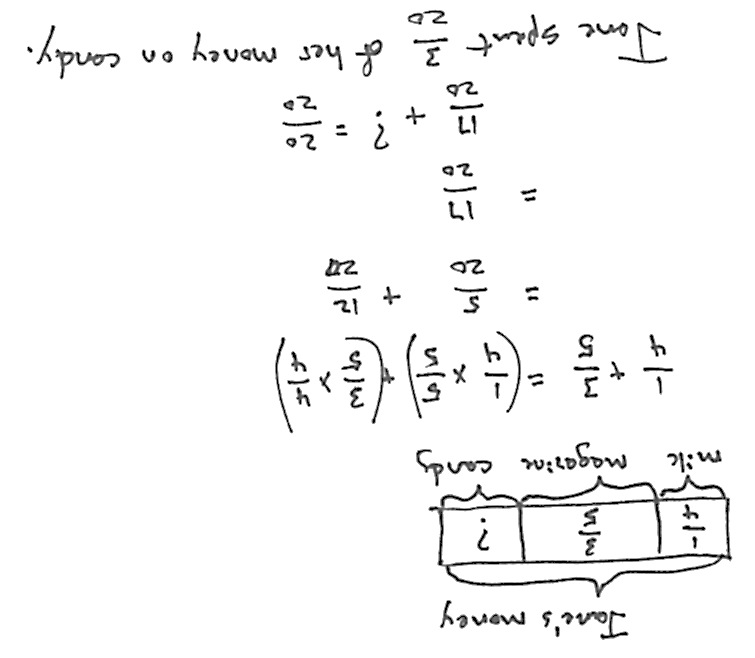 Jane's money
1/4 3/5 ?
milk magazine candy
1/4 + 3/5 = (1/4 × 5/5) + (3/5 × 4/4)
= 5/20 + 12/20
= 17/20
17/20 + ? = 20/20
Jane spent 3/20 of her money on candy.